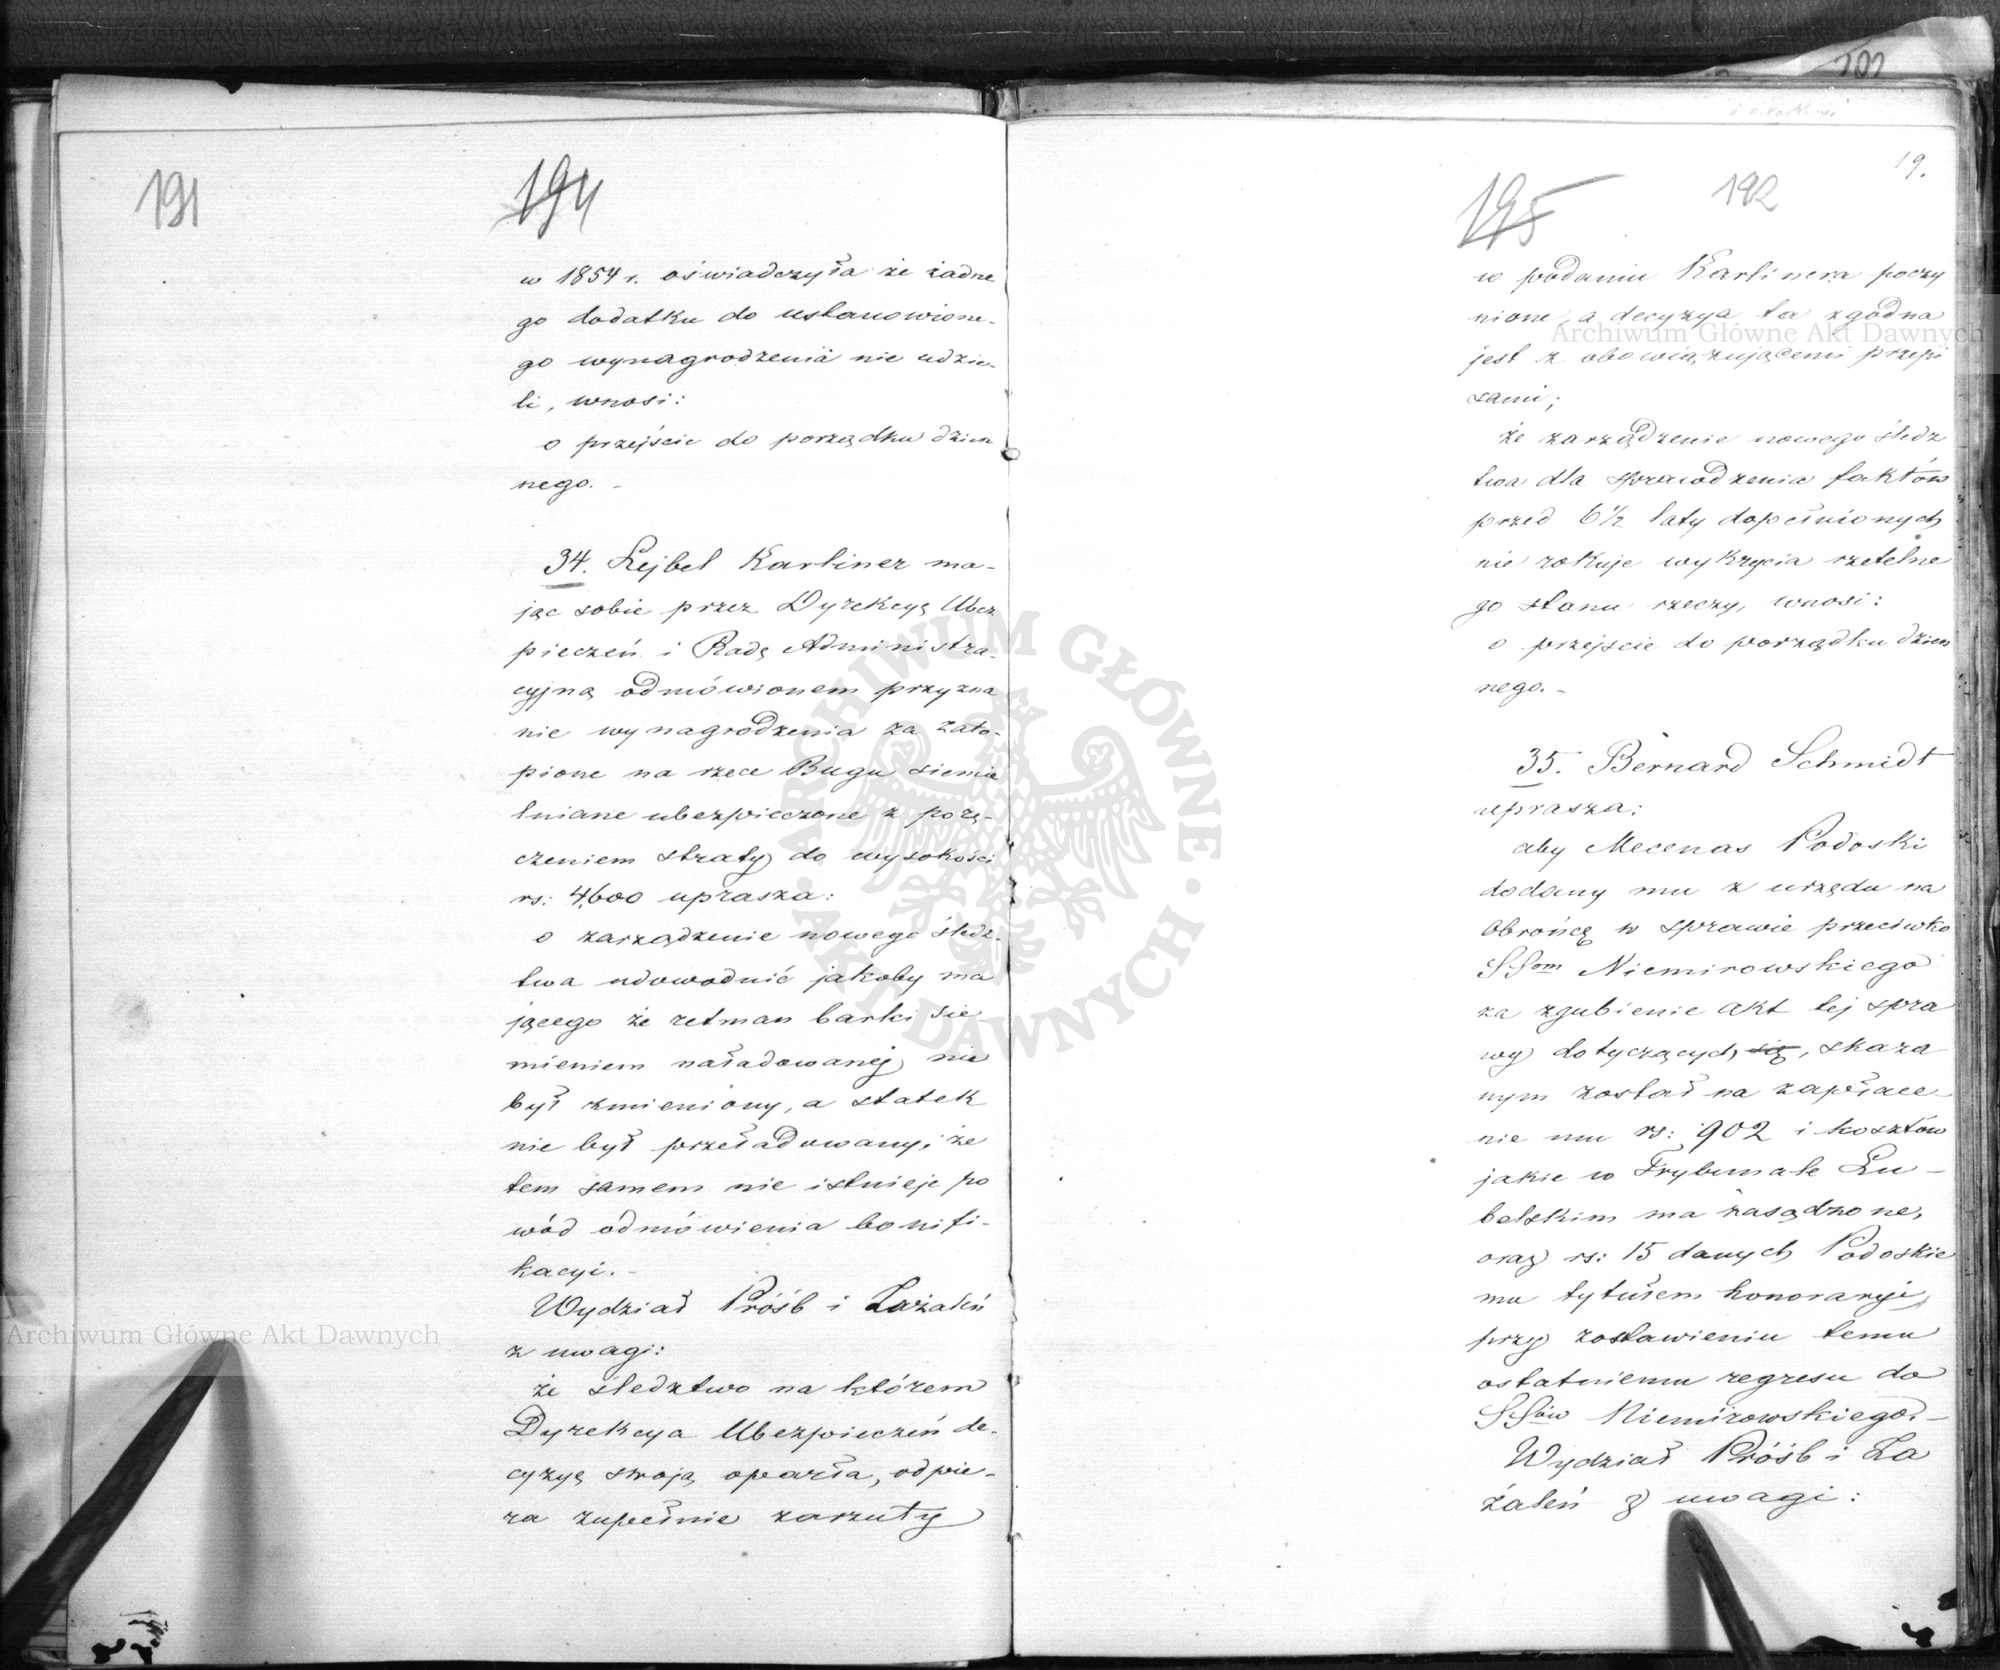 191
194
w 1854 r. oświadczyła że żadne
go dodatku do ustanowione-
go wynagrodzenia nie udzie-
li, wnosi:
o przejście do porządku dzien
nego. -
34. Lejbel Karliner ma-
jąc sobie przez Dyrekcyą Ubez
pieczeń i Radę Administra-
cyjną odmówionem przyzna
nie wynagrodzenia za zato-
pione na rzece Bugu siemie
lniane ubezpieczone z porę-
czeniem straty do wysokości
rs: 4,600 uprasza:
o zarządzenie nowego śledz-
twa udowodnić jakoby ma
jącego że retman barki sie-
mieniem naładowanej nie
był zmieniony, a statek
nie był przeładowany, że
tem samem nie istnieje po
wód odmówienia bonifi-
kacyi. -
Wydział Próśb i Zażaleń
z uwagi:
że śledztwo na którem
Dyrekcya Ubezpieczeń de-
cyzyę swoją oparła, odpie-
ra zupełnie zarzuty
19.
195
192
w podaniu Karlinera poczy
nione, a decyzya ta zgodna
jest z obowiązującemi przepi
sami;
że zarządzenie nowego śledz
twa dla sprawdzenia faktów
przed 6½ laty dopełnionych
nie rokuje wykrycia rzetelne
go stanu rzeczy, wnosi:
o przejście do porządku dzien
nego. -
35. Bernard Schmidt
uprasza:
aby Mecenas Podoski
dodany mu z urzędu na
Obrońcę w sprawie przeciwko
SSom Niemirowskiego
za zgubienie akt tej spra
wy dotyczących się, skaza
nym został na zapłace-
nie mu rs: 902 i kosztów
jakie w Trybunale Lu-
belskim ma zasądzone,
oraz rs: 15 danych Podoskie
mu tytułem honoraryi
przy zostawieniu temu
ostatniemu regresu do
SSów Niemirowskiego. -
Wydział Próśb i Za
żaleń z uwagi:
Archiwum Główne Akt Dawnych
Archiwum Główne Akt Dawnych
· ARCHIWUM GŁÓWNE · AKT DAWNYCH